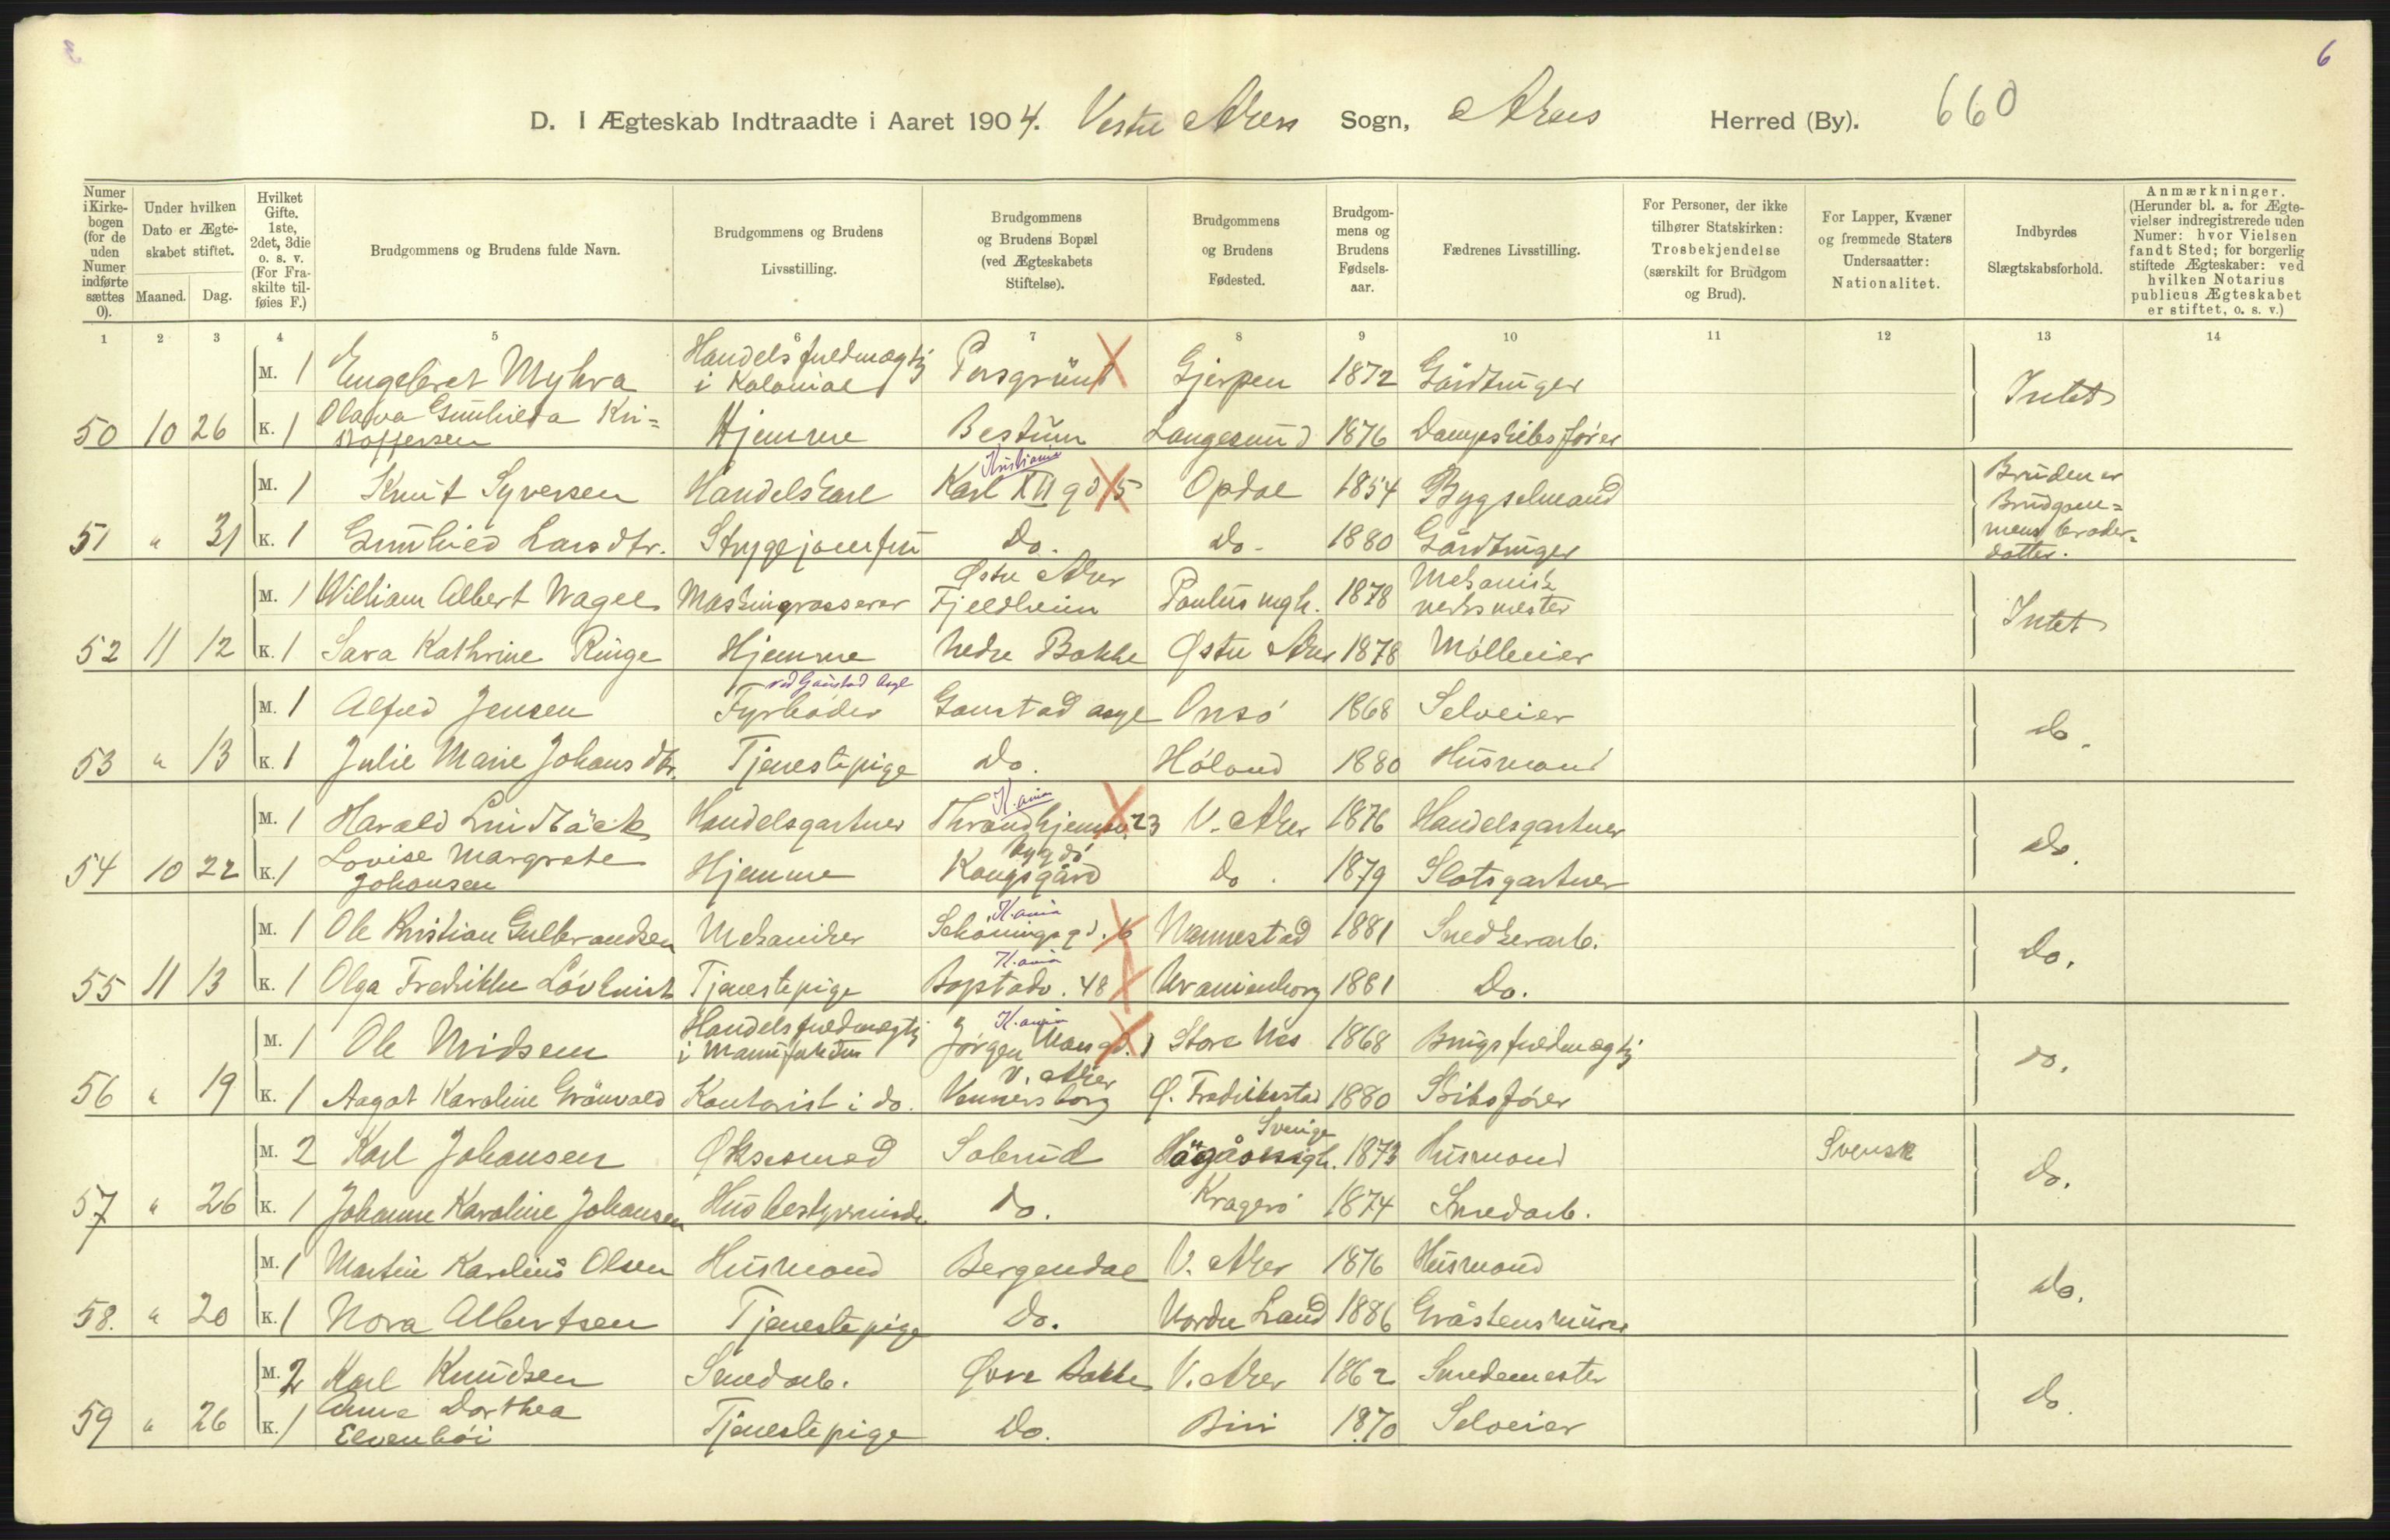 6
D. I Ægteskab Indtraadte i Aaret 1904. Vestre Aker Sogn, Akers Herred (By). 660
Numer i Kirke-bogen (for de uden Numer indførte sættes 0).
Under hvilken Dato er Ægte-skabet stiftet.
Maaned. Dag.
Hvilket Gifte. 1ste, 2det, 3die o. s. v. (For Fra-skilte til-føies F.)
Brudgommens og Brudens fulde Navn.
Brudgommens og Brudens Livsstilling.
Brudgommens og Brudens Bopæl (ved Ægteskabets Stiftelse).
Brudgommens og Brudens Fødested.
Brudgom-mens og Brudens Fødsels-aar.
Fædrenes Livsstilling.
For Personer, der ikke tilhører Statskirken: Trosbekjendelse (særskilt for Brudgom og Brud).
For Lapper, Kvæner og fremmede Staters Undersaatter: Nationalitet.
Indbyrdes Slægtskabsforhold.
Anmærkninger. (Herunder bl. a. for Ægte-vielser indregistrerede uden Numer: hvor Vielsen fandt Sted; for borgerlig stiftede Ægteskaber: ved hvilken Notarius publicus Ægteskabet er stiftet, o. s. v.)
1 2 3 4 5 6 7 8 9 10 11 12 13 14
M. 1 Engebret Myhra Handelsfuldmægtig i Kolonial Porsgrund Gjerpen 1872 Gårdbruger Intet
50 10 26 K. 1 Olava Gunhilda Kri=stoffersen Hjemme Bestum Langesund 1876 Dampskibsfører
M. 1 Knut Syversen Handelskarl Kristiania Karl XII gd 15 Opdal 1854 Bygselmand Bruden er Brudgom=mens broder=datter.
51 " 31 K. 1 Gunhild Larsdtr. Strygejomfru Do. Do. 1880 Gårdbruger
M. 1 William Albert Nagel Maskinpasserer Østre Aker Fjeldheim Paulus mgh. 1878 Mekanisk verksmester Intet
52 11 12 K. 1 Sara Kathrine Ringe Hjemme Nedre Bakke Østre Aker 1878 Mølleeier
M. 1 Alfred Jensen Fyrbøder ved Gaustad Asyl Gaustad asyl Onsø 1868 Selveier do.
53 " 13 K. 1 Julie Marie Johansdtr. Tjenestepige Do. Høland 1880 Husmand
M. 1 Harald Lindbäck Handelsgartner K.ania Throndhjemsv. 23 V. Aker 1876 Handelsgartner Do.
54 10 22 K. 1 Lovise Margrete Johansen Hjemme Bygdø Kongsgård Do. 1879 Slotsgartner
M. 1 Ole Kristian Gulbrandsen Mekaniker K.ania Schöningsgd. 16 Nannestad 1881 Snedkerarb. Do.
55 11 13 K. 1 Olga Fredrikke Lövkvist Tjenestepige K.ania Bogstadv. 48 Uranienborg 1881 Do.
M. 1 Ole Nridsen Handelsfuldmægtig i Manufaktur K.ania Jörgen Moes gd. 1 Store Nes 1868 Brugsfuldmægtig Do.
56 " 19 K. 1 Aagot Karoline Grönvold Kontorist i do. V. Aker Vennersborg Ø. Fredrikstad 1880 Skibsfører
M. 2 Karl Johansen Øksesmed Solerud Sverige 1873 Husmand Svensk Do.
57 " 26 K. 1 Johanne Karoline Johansen Husbestyrerinde Do. Kragerø 1874 Smedarb.
M. 1 Martin Karelius Olsen Husmand Bergendal V. Aker 1876 Husmand Do.
58. " 20 K. 1 Nora Albertsen Tjenestepige Do. Nordre Land 1886 Gråstensmurer
M. 2 Karl Knudsen Smedarb. Øvre Bakke V. Aker 1862 Smedemester Do.
59 " 26 K. 1 Anne Dorthea Elvenhøi Tjenestepige Do. Biri 1870 Selveier